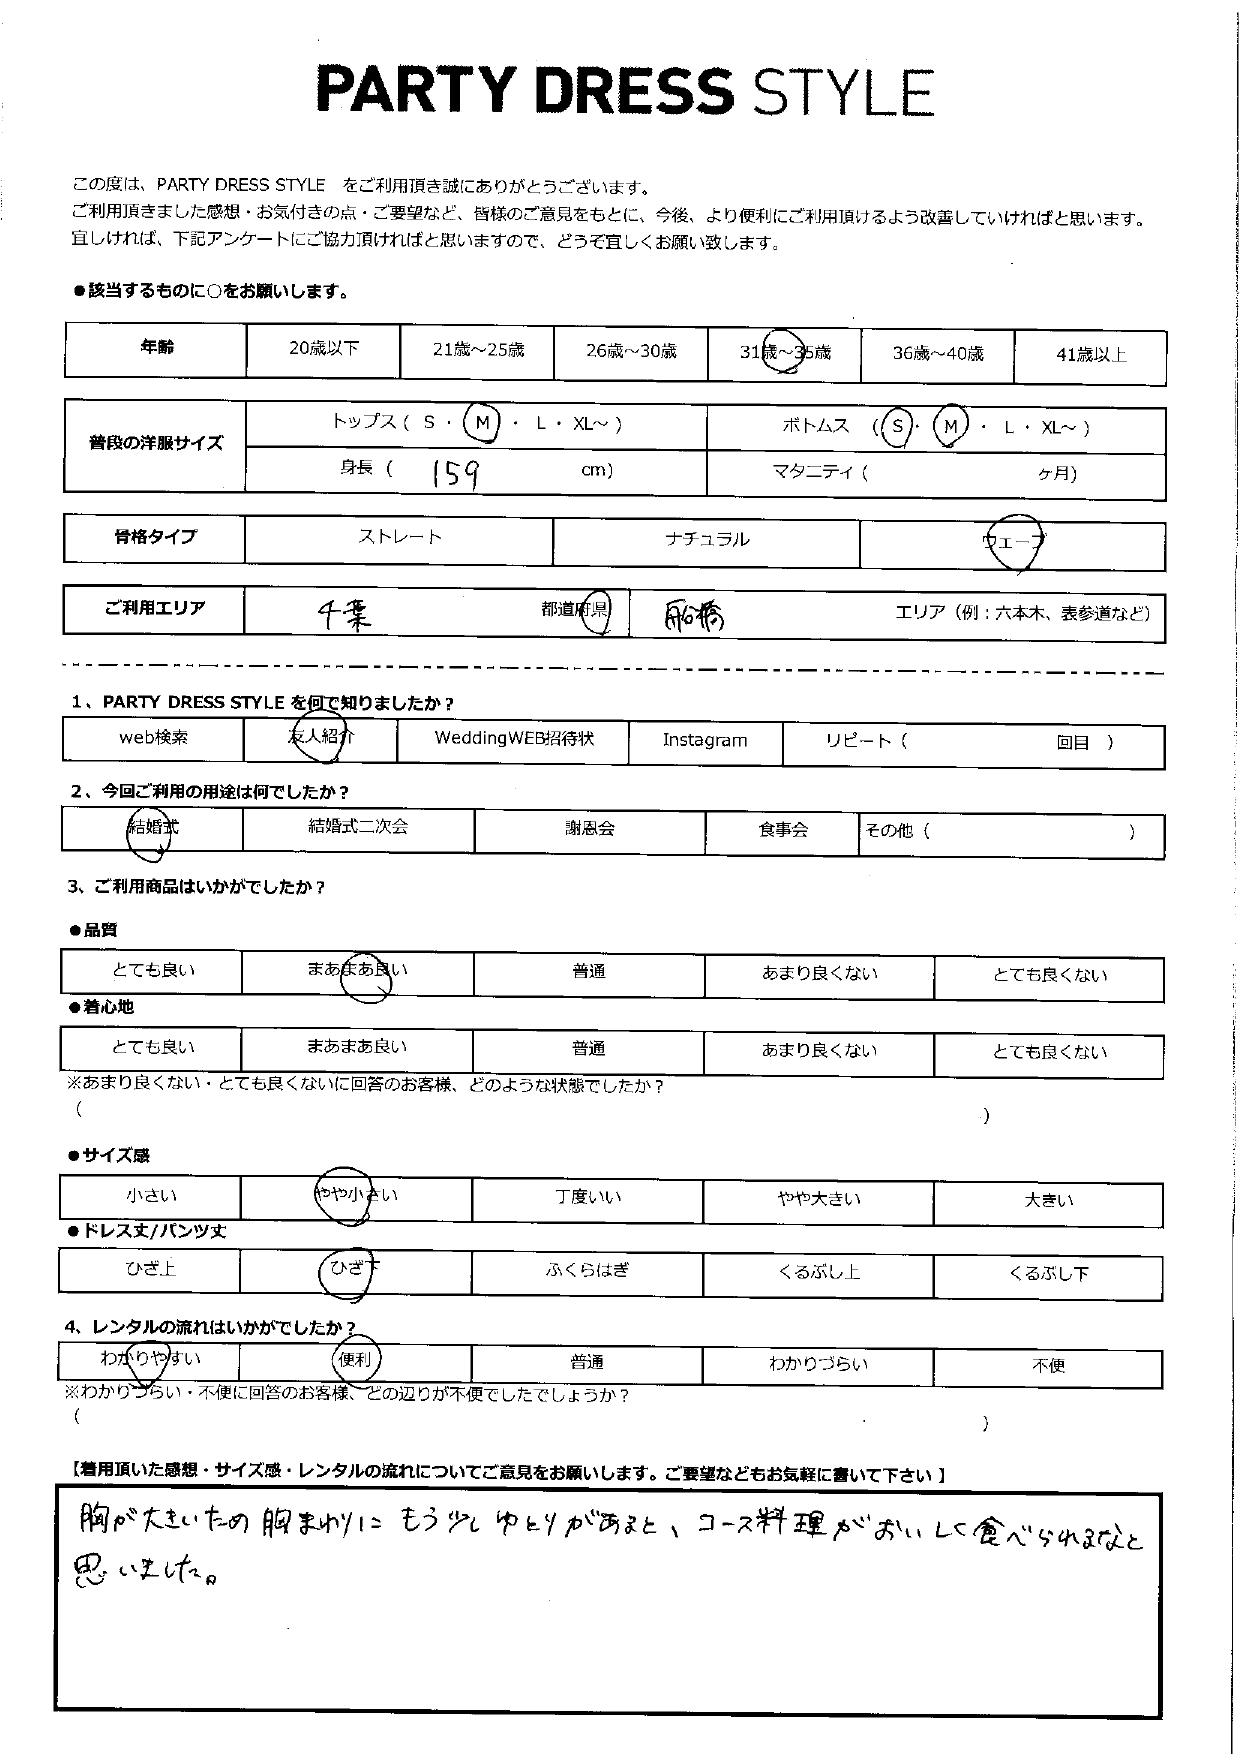 PARTY DRESS STYLE
この度は、PARTY DRESS STYLE をご利用頂き誠にありがとうございます。
ご利用頂きました感想・お気付きの点・ご要望など、皆様のご意見をもとに、今後、より便利にご利用頂けるよう改善していければと思います。
宜しければ、下記アンケートにご協力頂ければと思いますので、どうぞ宜しくお願い致します。
●該当するものに○をお願いします。
年齢 20歳以下 21歳～25歳 26歳～30歳 31歳～35歳 36歳～40歳 41歳以上
普段の洋服サイズ トップス ( S ・ M ・ L ・ XL～ ) ボトムス ( S ・ M ・ L ・ XL～ )
身長 ( 159 cm) マタニティ ( ヶ月)
骨格タイプ ストレート ナチュラル ウェーブ
ご利用エリア 千葉 都道府県 船橋 エリア（例：六本木、表参道など）
1、PARTY DRESS STYLE を何で知りましたか？
web検索 友人紹介 WeddingWEB招待状 Instagram リピート ( 回目 )
2、今回ご利用の用途は何でしたか？
結婚式 結婚式二次会 謝恩会 食事会 その他 ( )
3、ご利用商品はいかがでしたか？
●品質
とても良い まあまあ良い 普通 あまり良くない とても良くない
●着心地
とても良い まあまあ良い 普通 あまり良くない とても良くない
※あまり良くない・とても良くないに回答のお客様、どのような状態でしたか？
( )
●サイズ感
小さい やや小さい 丁度いい やや大きい 大きい
●ドレス丈/パンツ丈
ひざ上 ひざ下 ふくらはぎ くるぶし上 くるぶし下
4、レンタルの流れはいかがでしたか？
わかりやすい 便利 普通 わかりづらい 不便
※わかりづらい・不便に回答のお客様、どの辺りが不便でしたでしょうか？
( )
【着用頂いた感想・サイズ感・レンタルの流れについてご意見をお願いします。ご要望などもお気軽に書いて下さい】
胸が大きいため胸まわりにもう少しゆとりがあると、コース料理がおいしく食べられるなと
思いました。